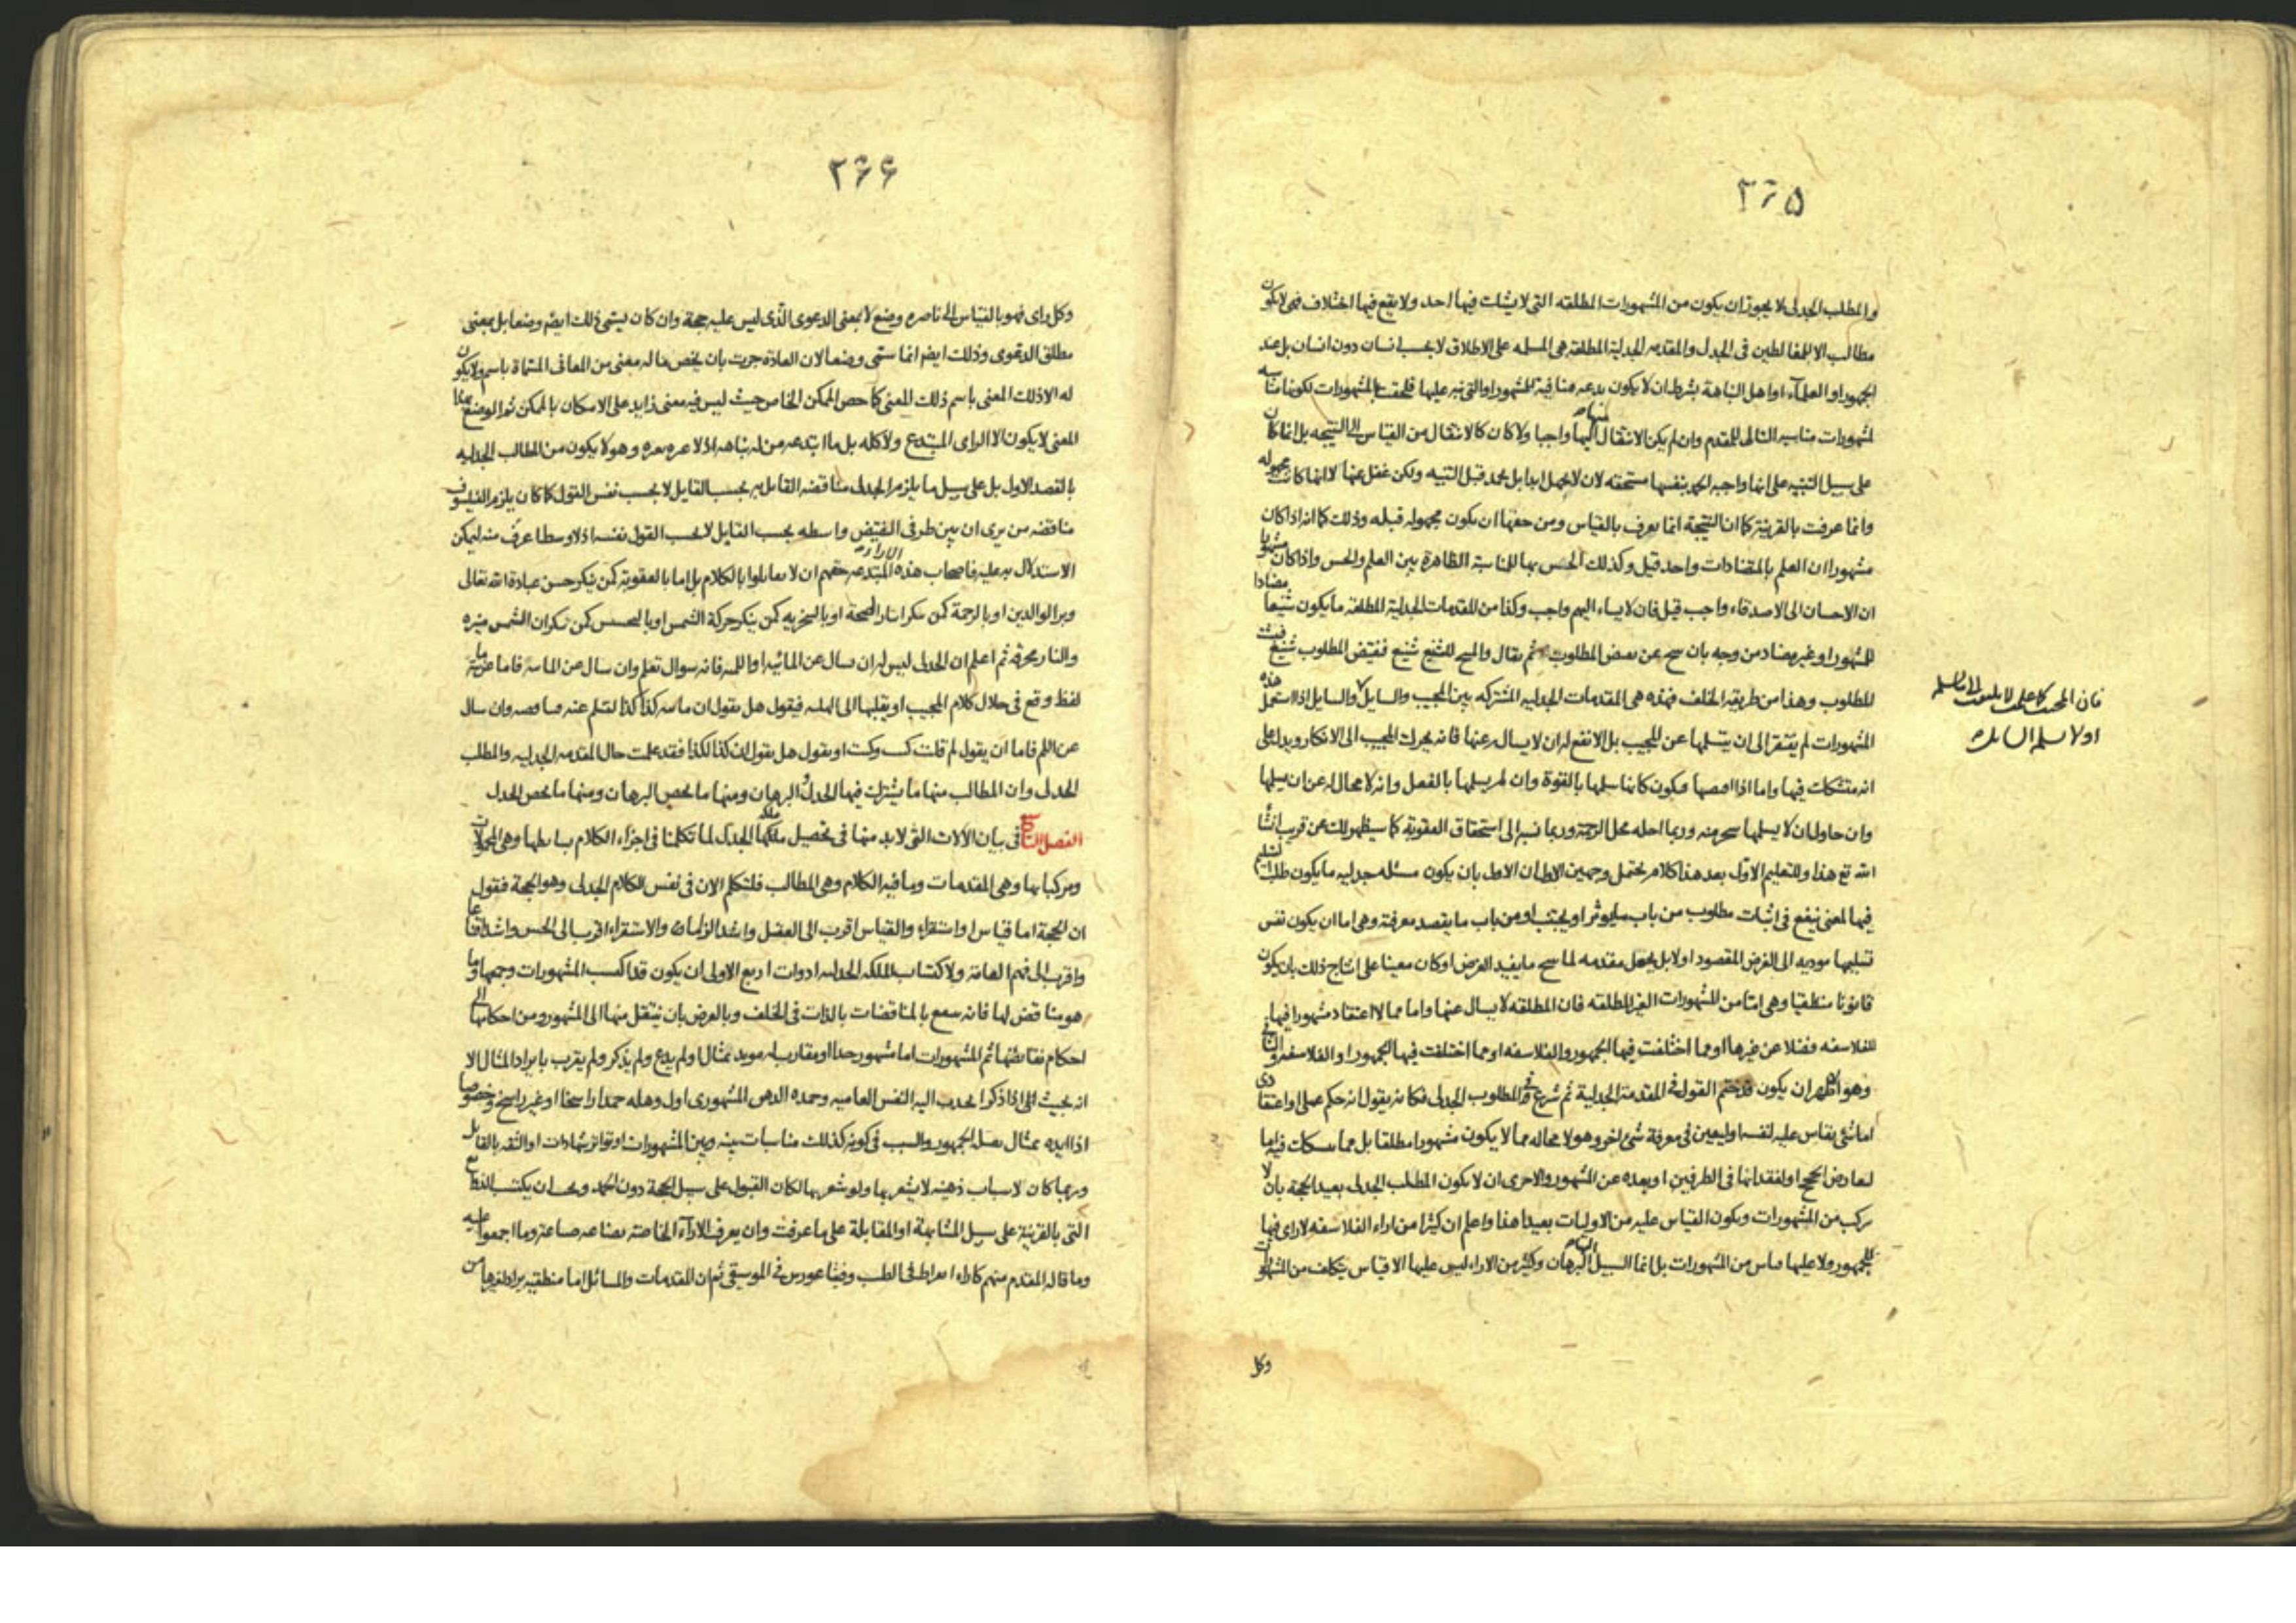 ٢٦٥
والمطلب الجدلى لا يجوز ان يكون من المشهورات المطلقه التى لا يشك فيها احد ولا يقع فيها اختلاف فح لا يكون
مطالب الا للمغالطين فى الجدل والمقدمه الجدلية المطلقة هى المسلمه على الاطلاق لا بحسب انسان دون انسان بل عند
الجمهور او العلمآء او اهل النباهة بشرط ان لا يكون بدعه منافية للمشهور او التى نبه عليها فلحقت بالمشهورات لكونها مناسبه
لمشهورات مناسبه التالى للمقدم وان لم يكن الانتقال منها اليها واجبا ولا كان كالانتقال من القياس الى النتيجه بل انما كان
على سبيل التنبيه على انها واجبه الحمد بنفسها مستحقه لان لا يجهل ابدا بل يحمد قبل التنبيه ولكن غفل عنها لا انها كانت مجهوله
وانما عرفت بالقرينة كما ان النتيجة انما يعرف بالقياس ومن حقها ان يكون مجهوله قبله وذلك كما انه اذا كان
مشهورا ان العلم بالمتضادات واحد قيل وكذلك الحس بها للمناسبة الظاهرة بين العلم والحس واذا كان مشهورا
ان الاحسان الى الاصدقاء واجب قيل فان لا يساء اليهم واجب وكذا من المقدمات الجدلية المطلقة ما يكون شنيعا مضادا
للمشهور او غير مضاد من وجه بان ينتج عن بعض المطلوب ثم يقال والمنتج للشنيع شنيع فنقيض المطلوب شنيع فيثبت
المطلوب وهذا من طريقه الخلف فهذه هى المقدمات الجدليه المشتركه بين المجيب والسايل والسايل اذا استعمل هذه
المشهورات لم يفتقر الى ان يتسلمها عن المجيب بل الانفع له ان لا يسال عنها فانه يحرك المجيب الى الانكار ويدل على
انه متشكك فيها واما اذا فيكون كانما سلمها بالقوة وان لم يسلمها بالفعل وانه لا محاله عن ان يسلمها
وان حاول ان لا يسلمها سخر منه وربما احله محل الرحمة وربما نسبه الى استحقاق العقوبة كما سيظهر لك عن قريب انشا
الله تع هذا وللتعليم الاول بعد هذا كلام يحتمل وجهين الاول ان يكون مسئله جدليه ما يكون طلب التسليم
فيها لمعنى ينفع فى اثبات مطلوب من باب ما يوثر او يجتنب او من باب ما يقصد معرفته وهى اما ان يكون نفس
تسليمها موديه الى الغرض المقصود اولا بل يجعل مقدمه لما ينتج ما يفيد الغرض او كان معينا على انتاج ذلك بان يكون
قانونا منطقيا وهى اما من المشهورات الغير المطلقه فان المطلقه لا يسال عنها واما مما لا اعتقاد مشهورا فيها
للفلاسفه فضلا عن غيرها او مما اختلفت فيها الجمهور والفلاسفه او مما اختلفت فيها الجمهور او الفلاسفه والثانى
وهو الاظهر ان يكون قد ختم القول فى المقدمة الجدلية ثم شرع فى المطلوب الجدلى فكانه يقول انه حكم عملى او اعتقادى
اما شئ يقاس عليه لنفسه او ليعين فى معرفة شئ اخر وهو لا محاله مما لا يكون مشهورا مطلقا بل مما يشكك فيه اما
لتعارض الحجج او لفقدانها فى الطرفين او بعده عن المشهور والاحرى ان لا يكون المطلب الجدلى بعيد الحجة بان لا
يركب من المشهورات ويكون القياس عليه من الاوليات بعيدا هذا واعلم ان كثيرا من اراء الفلاسفه لا راى فيها
للجمهور ولا عليها قياس من المشهورات بل انما السبيل اليها البرهان وكثير من الاراء ليس عليها الا قياس يتكلف من المشهورات
وكل
فان المجيب
اولا يسلمه السايل
٢٦٦
وكل راى فهو بالقياس الى ناصره وضع لا بمعنى الدعوى الذى ليس عليه حجة وان كان يسمى ذلك ايضم وضعا بل بمعنى
مطلق الدعوى وذلك ايضم انما سمى وضعا لان العادة جرت بان يخص ما له معنى من المعانى المسماة باسم ولا يكون
له الا ذلك المعنى باسم ذلك المعنى كما خص الممكن الخاص حيث ليس فيه معنى زايد على الامكان بالممكن ثم الوضع بهذا
المعنى لا يكون الا الراى المبتدع ولا كله بل ما ابتدعه من له نباهه اذ لا عبره بغيره وهو لا يكون من المطالب الجدليه
بالقصد الاول بل على سبيل ما يلزم الجدلى مناقضه القايل به بحسب القايل لا بحسب نفس القول كما كان يلزم الفيلسوف
مناقضه من يرى ان بين طرفى النقيض واسطه بحسب القايل لا بحسب القول نفسه اذ لا وسطا اعرف منه ليمكن
الاستدلال به عليه فاصحاب هذه الاراء المبتدعه حقهم ان لا يقابلوا بالكلام بل اما بالعقوبة كمن ينكر حسن عبادة الله تعالى
وبر الوالدين او بالرحمة كمن ينكر ايثار الصحة او بالسخريه كمن ينكر حركة الشمس او بالتحسس كمن ينكر ان الشمس منيره
والنار محرقه ثم اعلم ان الجدلى ليس له ان يسال عن المائيه او اللميه فانه سوال تعلم وان سال عن المائيه فاما عن مائيه
لفظ وقع فى خلال كلام المجيب او يقلبها الى الهليه فيقول هل يقول ان ماهيه كذا كذا لتسلم عنه وان سال
عن اللم فاما ان يقول لم قلت كيت وكيت او يقول هل يقول ان كذا لكذا فقد علمت حال المقدمه الجدليه والمطلب
الجدلى وان المطالب منها ما يشترك فيها الجدل والبرهان ومنها ما يخص البرهان ومنها ما يخص الجدل
الفصل الثانى فى بيان الالات التى لا بد منها فى تحصيل ملكه الجدل لما تكلمنا فى اجزاء الكلام بسايطها وهى المحمولات
ومركباتها وهى المقدمات وما فيه الكلام وهى المطالب فلنتكلم الان فى نفس الكلام الجدلى وهو الحجة فنقول
ان الحجة اما قياس او استقراء والقياس اقرب الى العقل واشد الزاما والاستقراء اقرب الى الحس واشد اقناعا
واقرب الى فهم العامة ولاكتساب الملكه الجدليه ادوات اربع الاولى ان يكون قد اكتسب المشهورات وجمعها وما
هو مناقض لها فانه ينتفع بالمناقضات بالذات فى الخلف وبالعرض بان ينتقل منها الى المشهور ومن احكامها الى
احكام نقايضها ثم المشهورات اما مشهور جدا او مقارب له مويد بمثال او لم يدع ولم يذكر ولم يقرب بايراد المثال الا
انه بحيث اذا ذكر انجذب اليه النفس العاميه وحمده الذهن المشهورى اول وهله حمدا راسخا او غير راسخ وخصوصا
اذا ايده بمثال يقبله الجمهور والسبب فى كونه كذلك مناسبات بينه وبين المشهورات او تواتر شهادات او الثقه بالقايل
وربما كان لاسباب ذهنيه لا يشعر بها ولو شعر بها لكان القبول على سبيل الحجة دون الحمد ويجب ان يكتسب الشنايع
التى بالقرينة على سبيل المشابهة او المقابلة على ما عرفت وان يعرف الارآء الخاصة بصناعه صناعة وما اجمعوا عليه
وما قاله المقدم منهم كاراء ابقراط فى الطب وفيثاغورس فى الموسيقى ثم ان المقدمات والمسائل اما منطقيه يراد لغيرها من